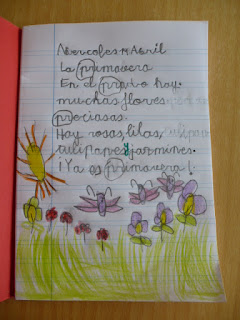 Miercoles 14 Abril
La primavera
En el prado hay
muchas flores
preciosas.
Hay rosas, lilas,
tulipanes y jazmines.
¡Ya es primavera!